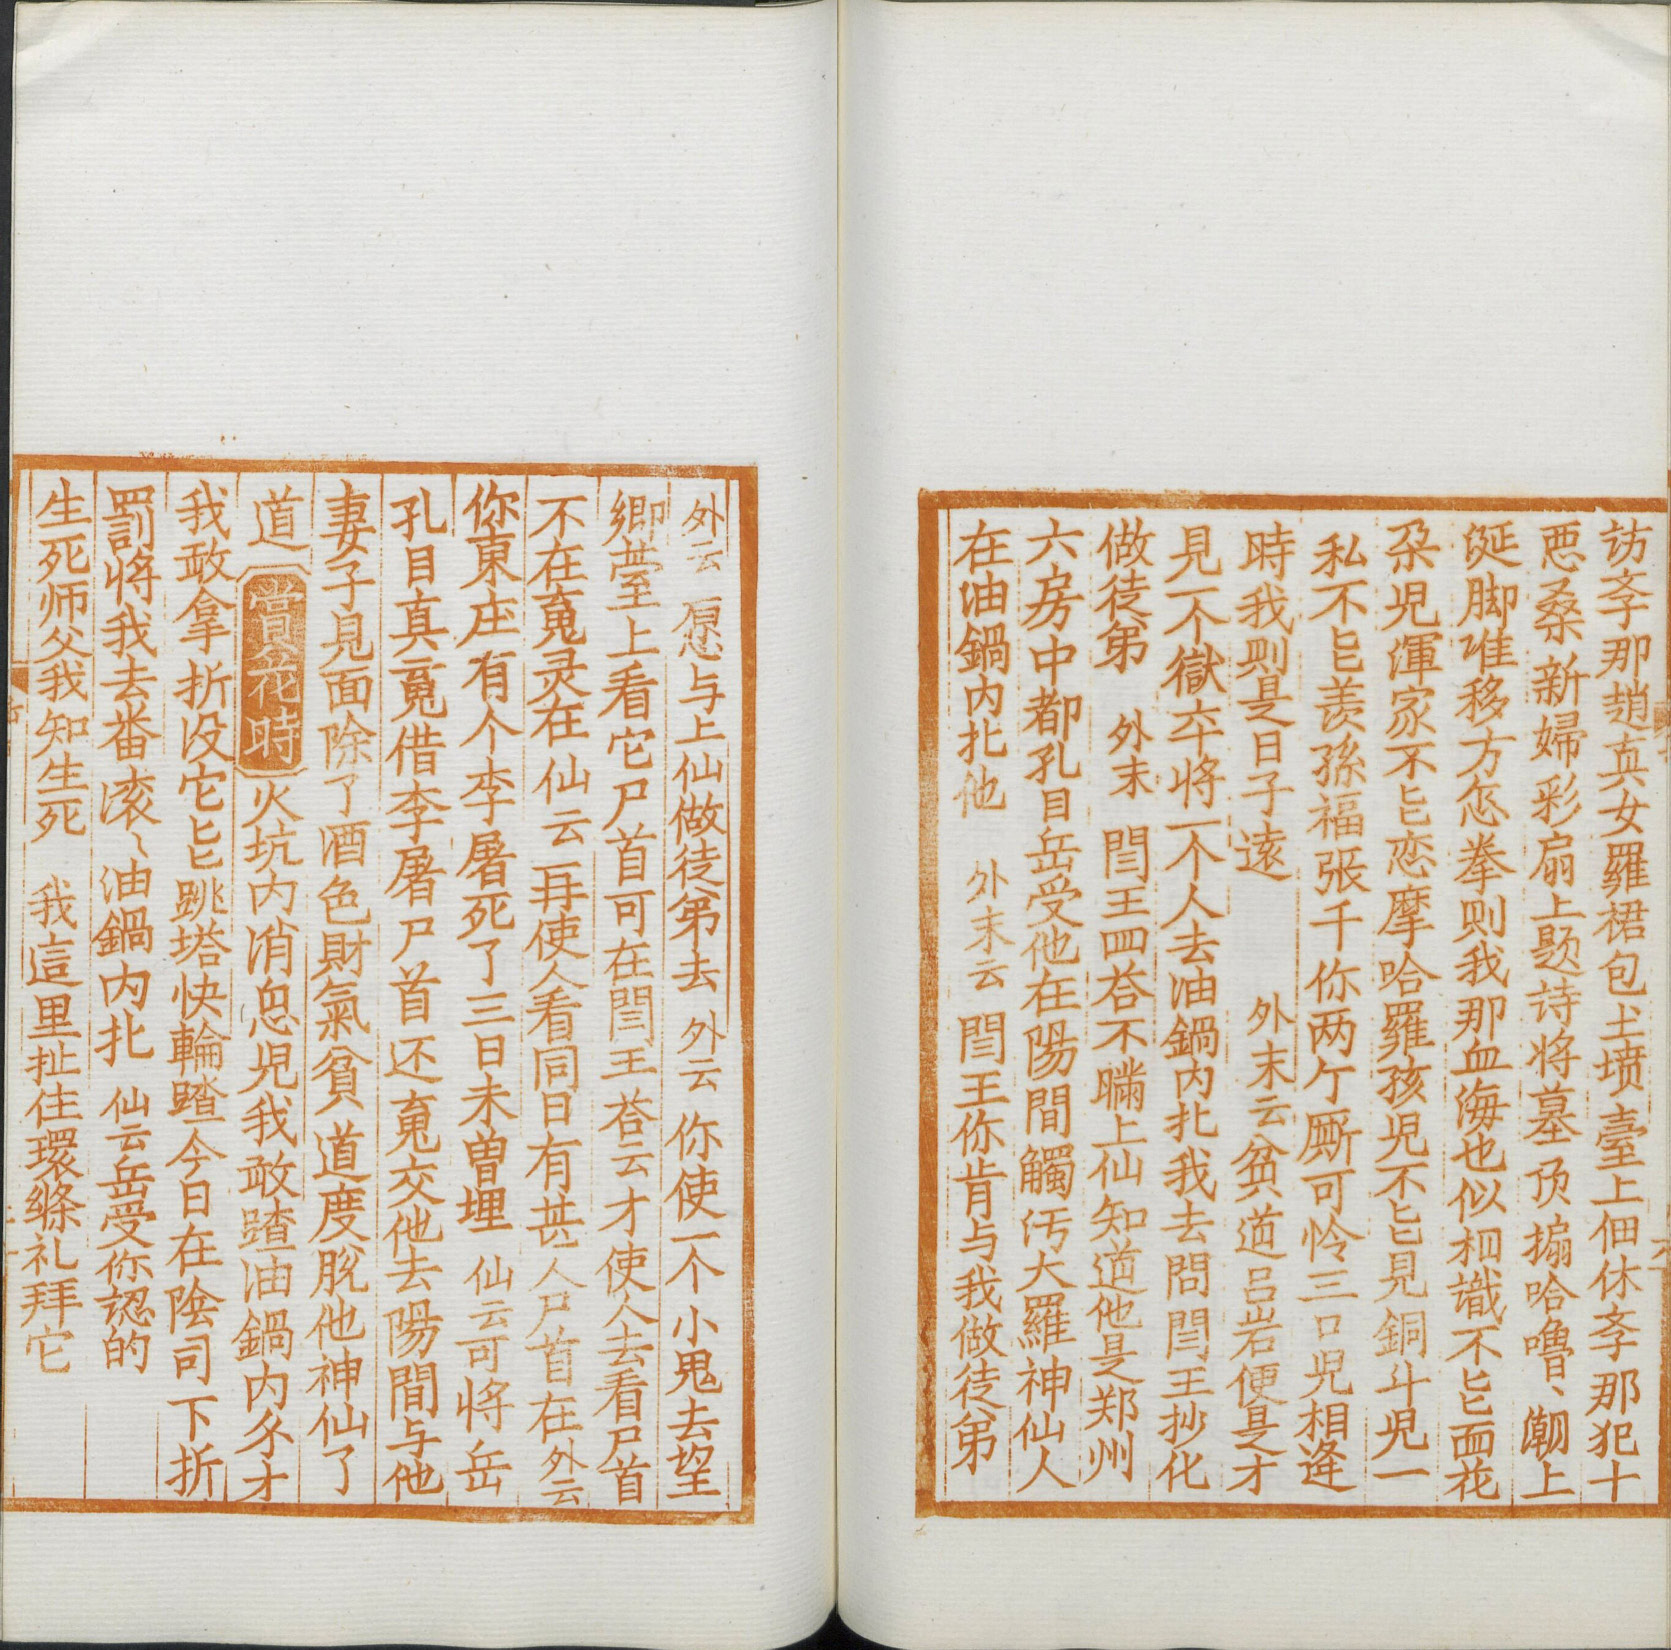 访斎那趙真女羅裙包土坟臺上佃休斎那犯十
悪桑新婦彩扇上题詩将墓顶搧哈嚕、潮上
涎脚难移方怎拳则我那血海也似相識不㠯面花
朶児渾家不㠯恋摩哈羅孩児不㠯見銅斗児一
私不㠯羡孫福張千你两个厮可怜三口児相逄
時我则是日子遠 外末云貧道吕岩便是才
見一个獄卒将一个人去油鍋内扎我去問閆王抄化
做徒弟 外末 閆王四荅不瞒上仙知道他是郑州
六房中都孔目岳受他在陽間觸汚大羅神仙人
在油鍋内扎他 外末云 閆王你肯与我做徒弟
外云 愿与上仙做徒弟去 外云 你使一个小鬼去望
鄉臺上看它尸首可在閆王荅云才使人去看尸首
不在䰟灵在 仙云再使人看同日有甚人尸首在外云
你東庄有个李屠死了三日未曽埋 仙云可将岳
孔目真䰟借李屠尸首还䰟交他去陽間与他
妻子見面除了酒色財氣貧道度脱他神仙了
道 賞花時 火坑内消息児我敢蹅油鍋内𢆯才
我敢拿折没它㠯跳塔快輪蹅今日在隂司下折
罰将我去番滚〻油鍋内扎 仙云岳受你認的
生死师父我知生死 我這里扯住環絛礼拜它